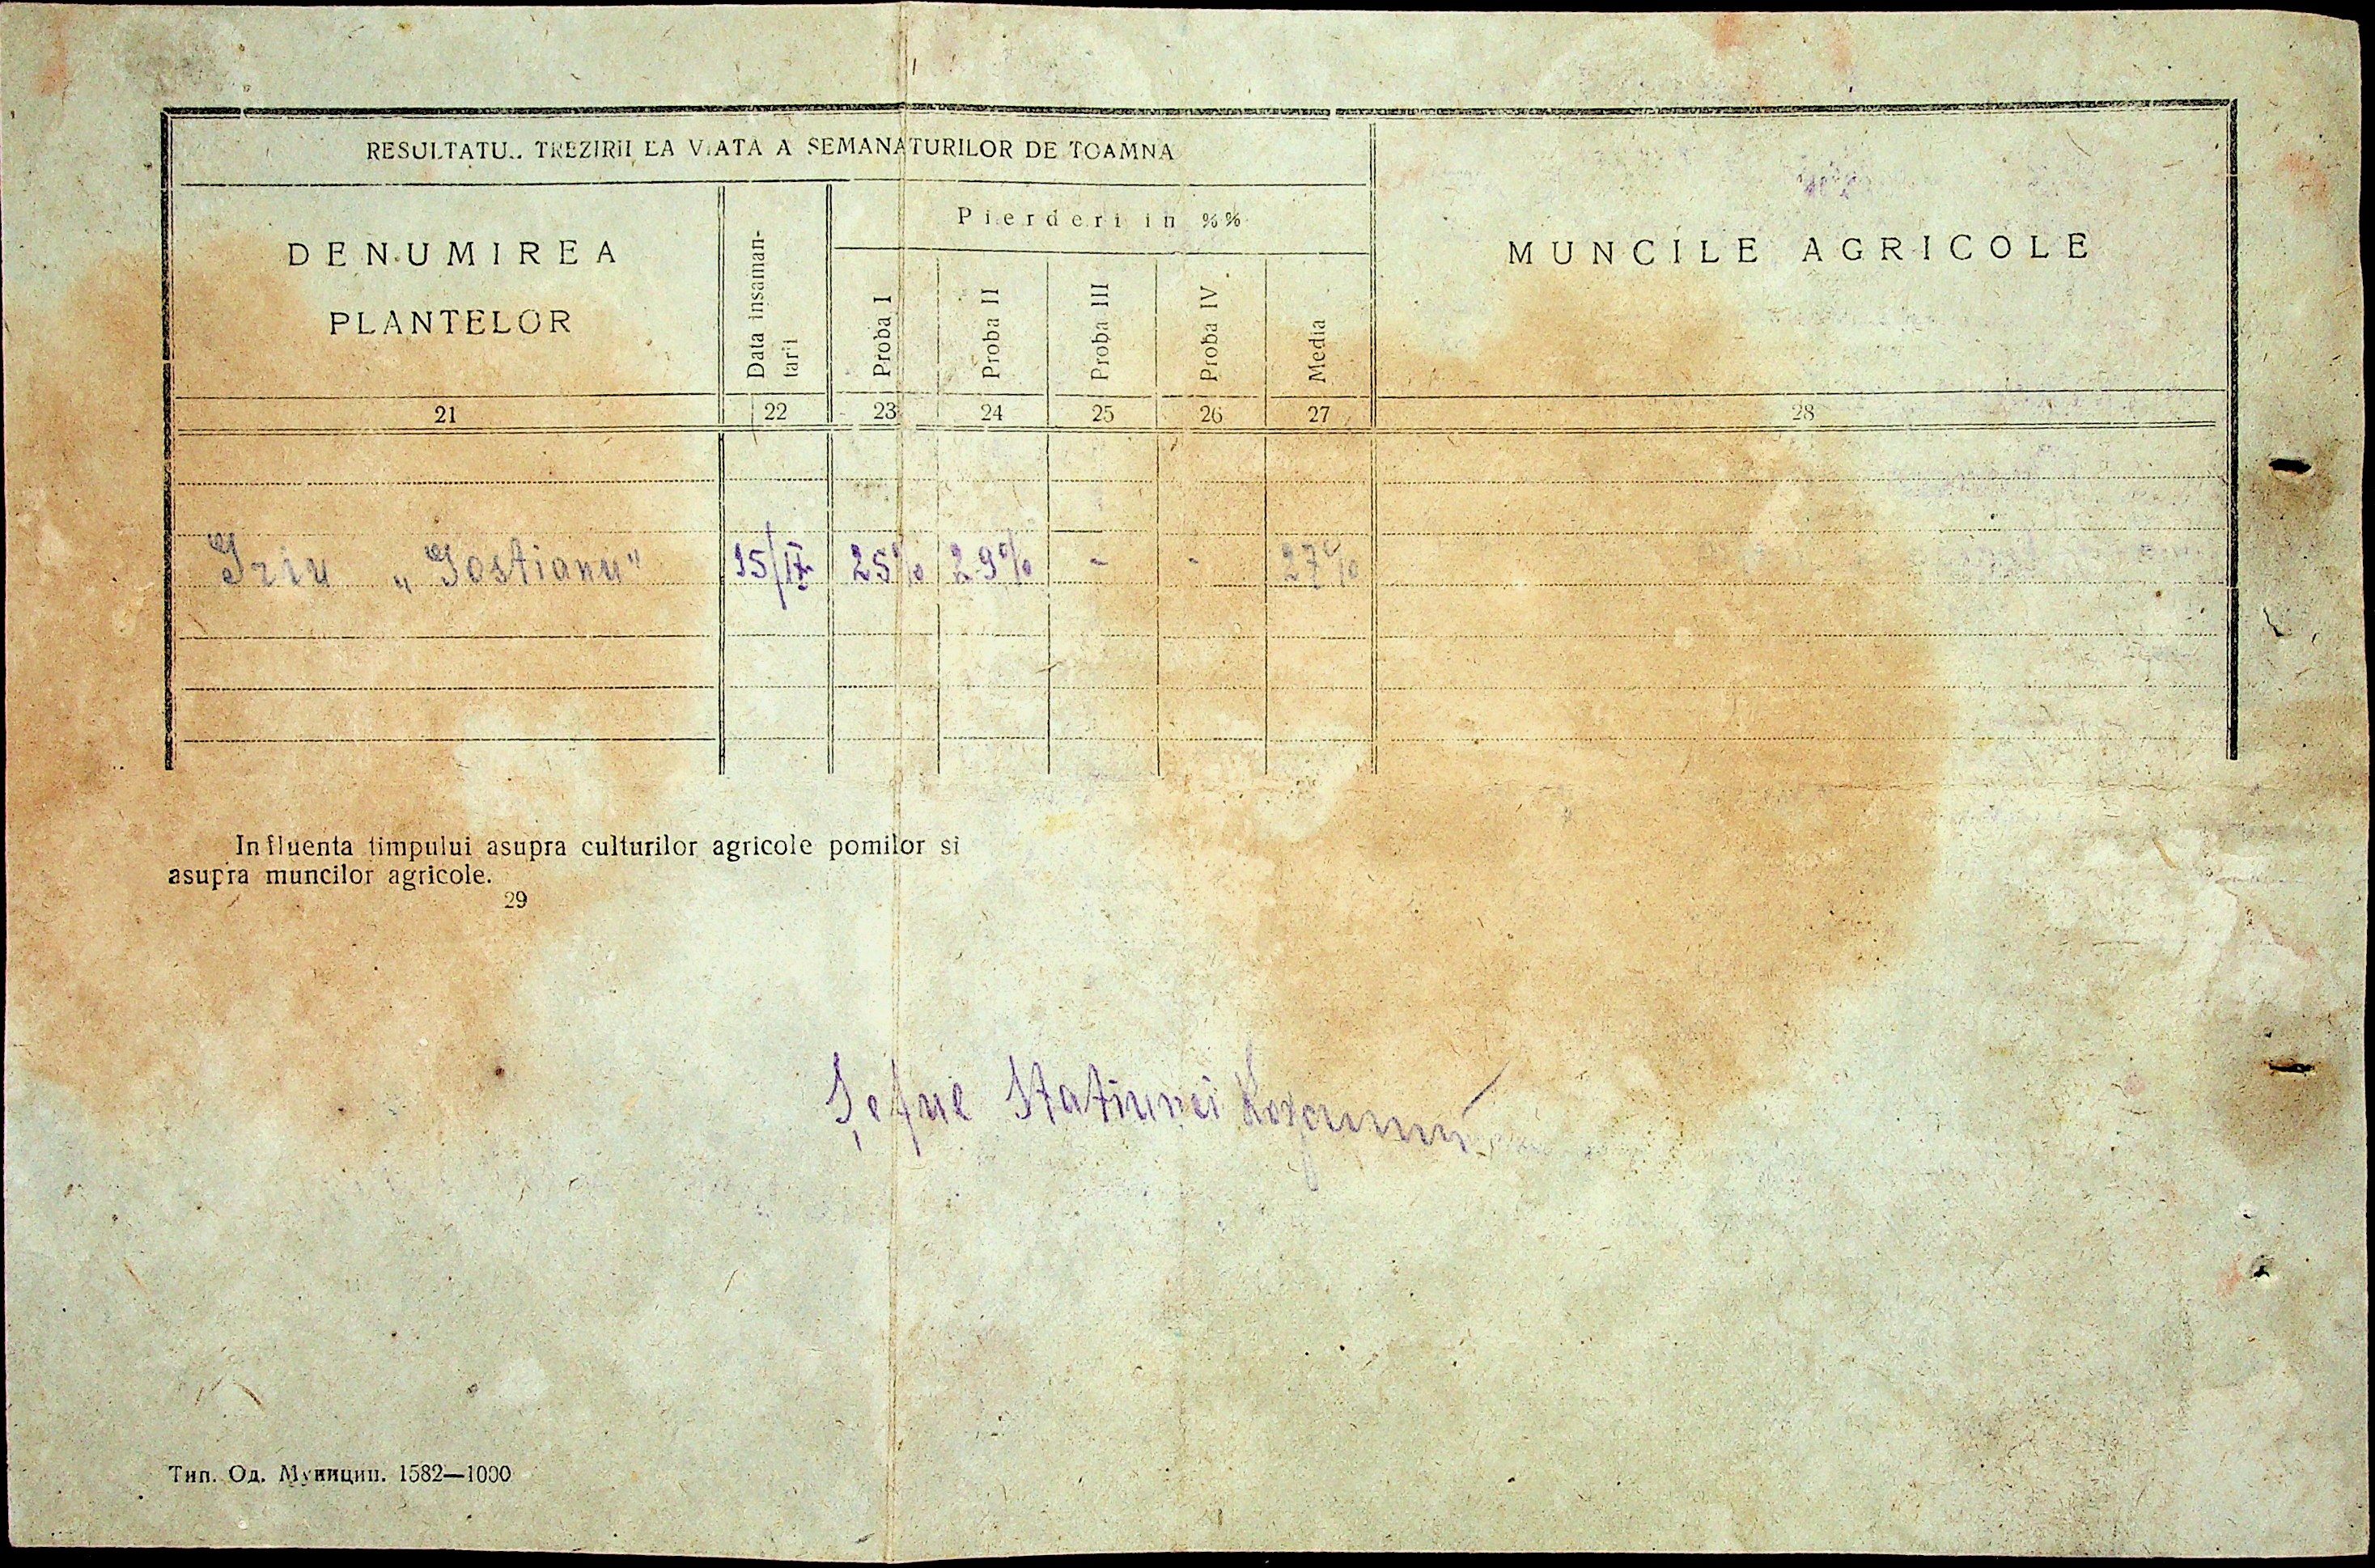 RESULTATU.. TREZIRII LA VIATA A SEMANATURILOR DE TOAMNA
DENUMIREA
PLANTELOR
Data insaman-
tarii
Pierderi in %%
Proba I
Proba II
Proba III
Proba IV
Media
MUNCILE AGRICOLE
21 22 23 24 25 26 27 28
Griu „Gostianu" 15/IX 25% 29% - - 27%
Influenta timpului asupra culturilor agricole pomilor si
asupra muncilor agricole.
29
Șeful Statiunei
Тип. Од. Муницип. 1582—1000